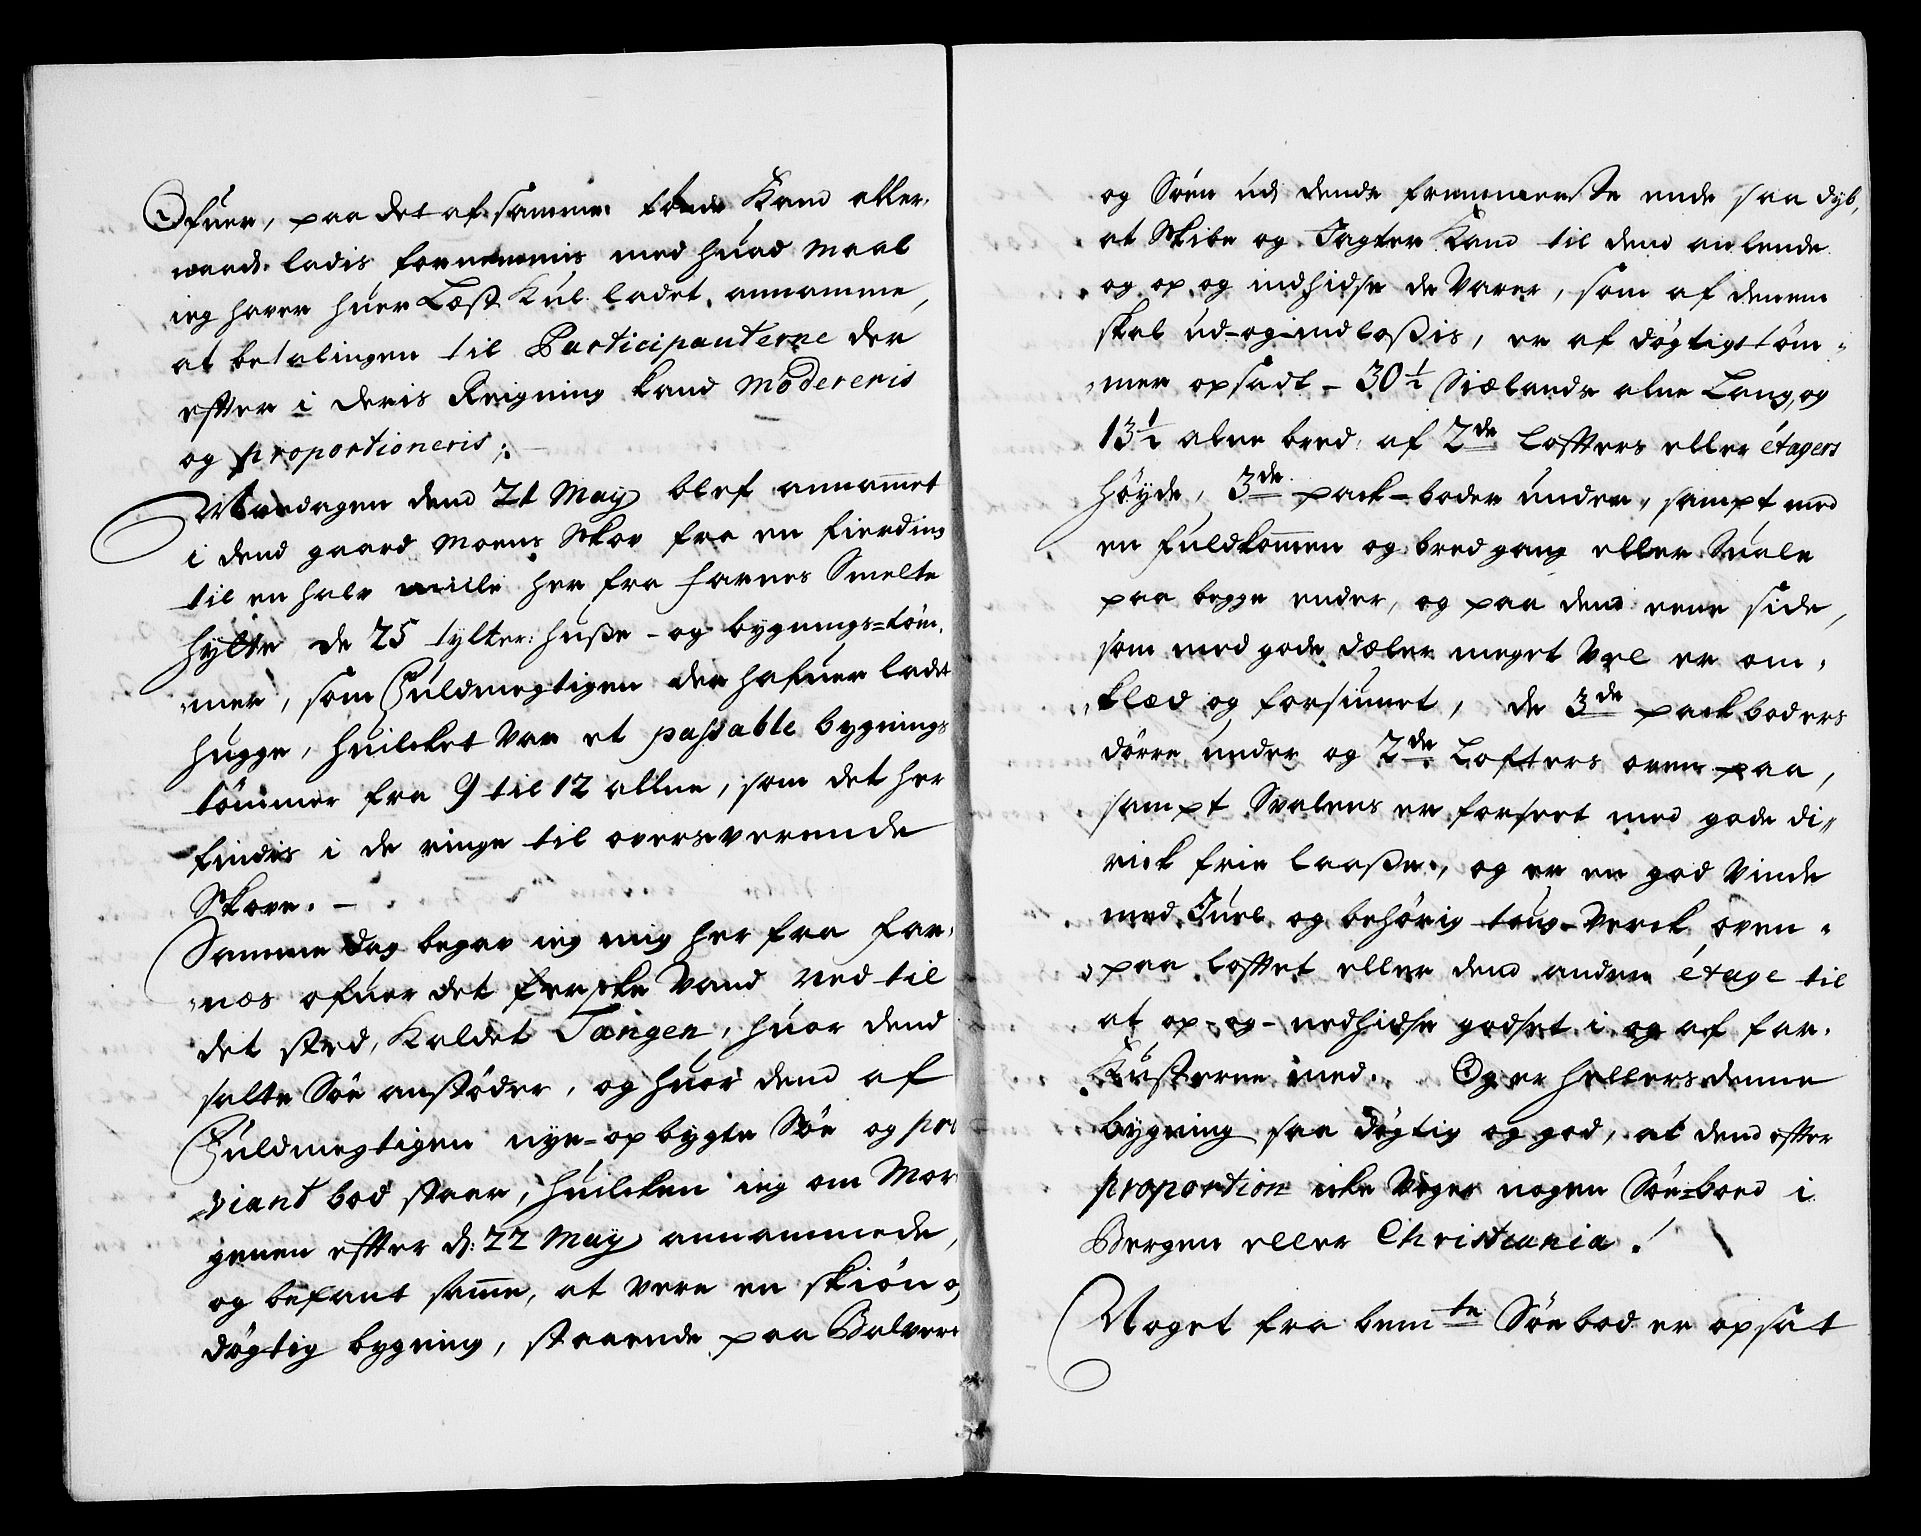 Ofuer, paa det af samme tønde Kand aller-
ieg haver huer Læst Kul ladet annamme,
at betalingen til Participanterne der
efter i deris Reigning kand modereris
og proportioneris;
dagen dend 21 Maij blef annamet
i dend gaard Moens Skov fra en fierding
til en halv mille her fra Farnes Smelte
hytte de 25 tylter huße- og bygnings-tøm-
mer, som Fuldmegtigen der hafuer ladet
hugge, huilcket var et passable bygnings
tømmer fra 9 til 12 allne, som det her
findis i de ringe til oversverende
Skove. -
Samme dag begav ieg mig her fra Far-
næs ofuer det ferske Vand ned til
det sted, Kaldet Tangen, huor dend
salte Søe anstøder, og huor dend af
Fuldmegtigen nye-opbygte Søe og pro
viant bod staar, huilcken ieg om Mor
genen efter d: 22 Maij annammede,
og befant same, at vere en skiøn og
døgtig bygning, staaende paa Bolverk
og Søen ud dends fremmerste ende saa dyb,
at Skibe og Jagter Kand til dend anlende
og op og indhidse de Varer, som af dennem
skal ud-og-indloßis, er af døgtigt tøm-
mer opsadt - 30½ Siælands alne Lang, og
13½ alne bred, af 2de Loffters eller étagers
høyde, 3de pack-boder under, sampt med
en fuldkommen og bred gang eller Suale
paa begge ender, og paa dend eene side,
som med gode dæler meget vel er om-
klæd og forsiunet, de 3de packboders
dørre under og 2de Lofters oven paa,
sampt Svalens er forseet med gode di-
rick frie laaße, og er en god Vinde
med Juel og behørig toug-Verck oven-
paa lofftet eller dend anden étage til
at op-og-nedhidse godset i og af far-
Kusterne med. Og er hellers denne
bygning saa døgtig og god, at dend efter
proportion icke Viger nogen Søe-boed i
Bergen eller Christiania.
Noget fra bemte Søebod er opsat